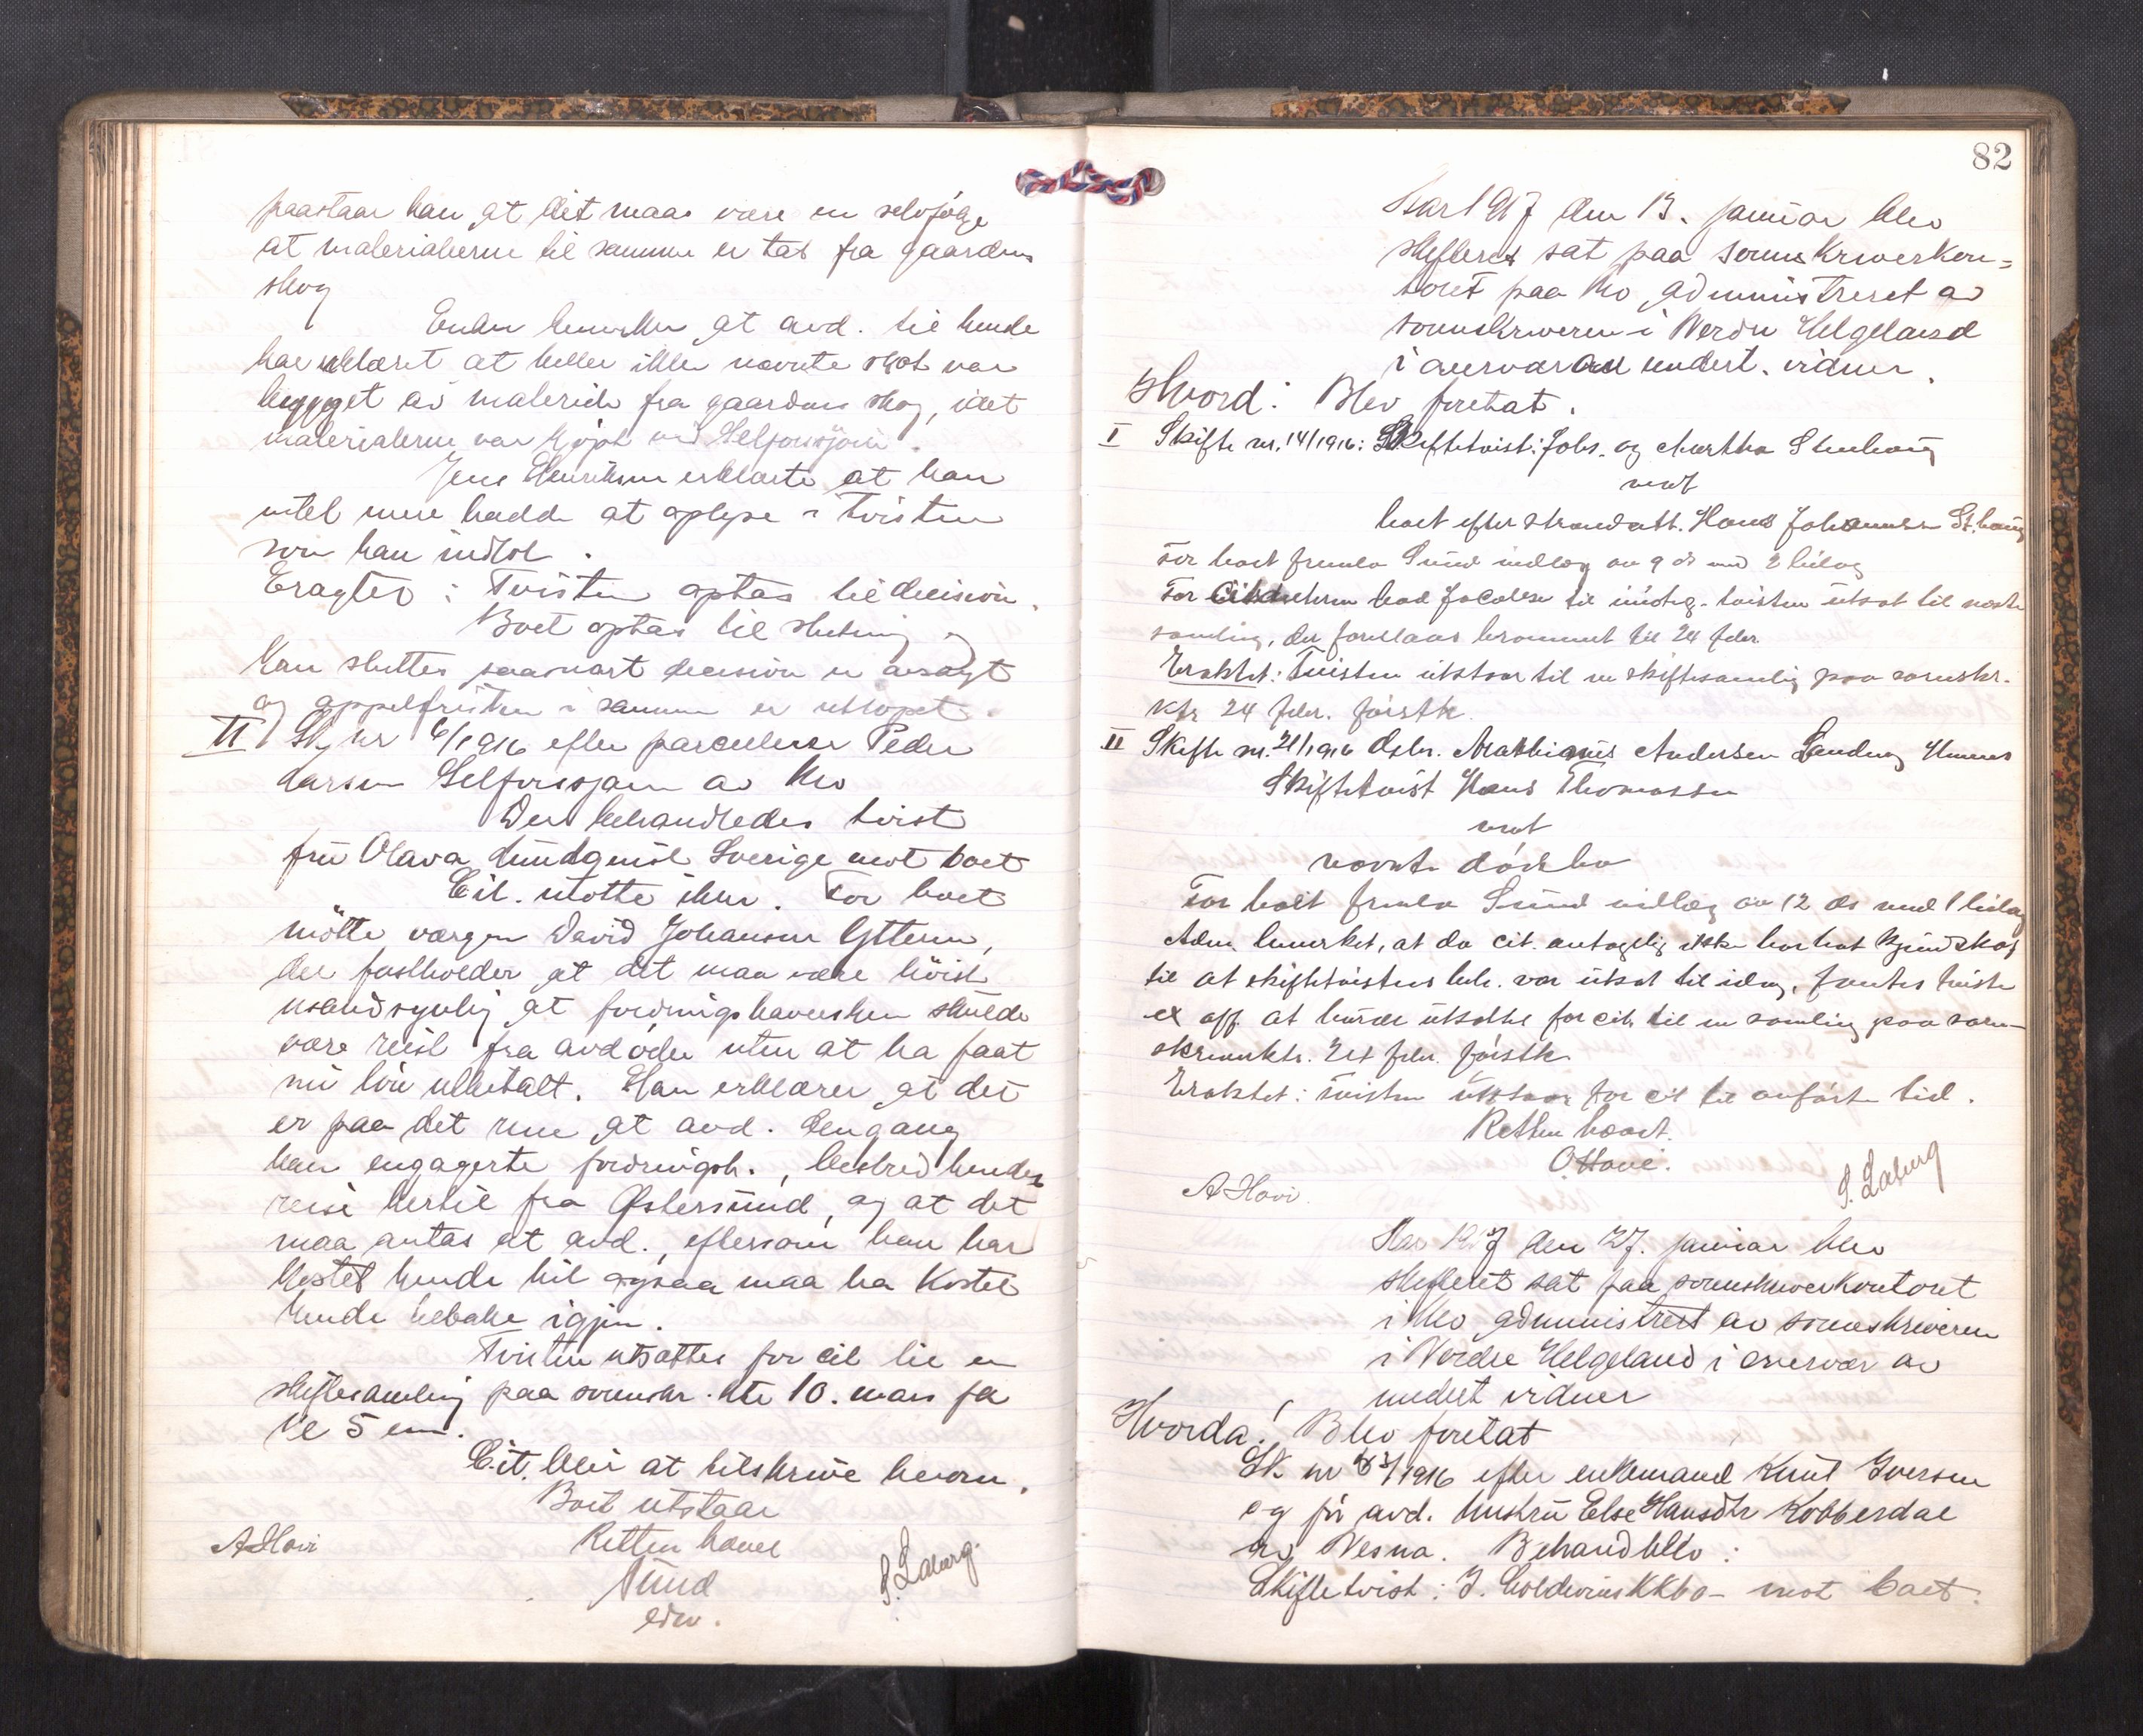 paastaar han at det maas være en selvfølge
at materialierne til samme er tat fra gaardens
skog
Enken bemerker at avd. til hende
har erklæret at heller ikke nævnte skot var
bygget av materiale fra gaardens skog, idet
materialerne var kjøpt ved Selforssjøen.
Jens Henriksen erklærte at han
intet mere hadde at oplyse i tvisten
som han indlot.
Eragtet: Tvisten optas til decision.
Boet optas til slutning og
kan sluttes saasnart decision er avsagt
og appelfristen i samme er utløpet.
II Sk. nr 6/1916 efter parcelleier Peder
Larsen Selforssjøen av Mo
Der behandledes tvist
fru Olava Lundquist Sverige mot boet
Cit. møtte ikke. For boet
mötte vergen David Johansen Ytteren,
der fastholder at det maa være höist
usandsynlig at fordringshaversken skulde
være reist fra avdöde uten at ha faat
sin lön utbetalt. Han erklærer at det
er paa det rene at avd. dengang
han engagerte fordringsh., bestred hendes
reise hertil fra Østersund, og at det
maa antas at avd., eftersom han har
kostet hende hit ogsaa maa ha kostet
hende tilbake igjen.
Tvisten utsattes for cit til en
skiftesamling paa sorenskr. kte 10. mars fk
kl 5 em.
Cit. blir at tilskrive herom.
Boet utstaar
Retten hævet
Sund
edsv.
A Hovi
S. Laberg.
82
Aar 1917 den 13. januar blev
skifteret sat paa sorenskriverkon-
toret paa Mo administreret av
sorenskriveren i Nordre Helgeland
i overvær av undert. vidner.
Hvord: Blev foretat.
I Skifte nr. 14/1916: Skiftetvist: Johs. og Martha Stenhaug
mot
boet efter strandsitt. Hans Johannesen St.haug
For boet fremla Sund indlæg av 9 ds med 2 bilag
For Citanterne bad Jacobsen til imøteg. tvisten utsat til næste
samling, der foreslaaes berammet til 24 febr.
Eraktet: Tvisten utstaar til en skiftesamling paa sorenskr.
ktr 24 febr. førstk.
II Skifte nr. 21/1916 Dsbr. Mathias Andersen Sandvig Hemnes
Skiftetvist Hans Thomassen
mot
nævnte dødsbo
For boet fremla Sund indlæg av 12 ds med 1 bilag
Adm. bemerket, at da cit. antagelig ikke har hat kjendskap
til at skiftetvistens beh. var utsat til idag, fantes tvisten
ex off. at burde utsættes for cit. til en samling paa soren-
skriverktr. 24 febr. førstk.
Eraktet: Tvisten utstaar for cit til anførte tid.
Retten hævet.
O Hovi.
A Hovi.
S. Laberg
Aar 1917 den 27. januar blev
skifteret sat paa sorenskriverkontoret
i Mo administreret av sorenskriveren
i Nordre Helgeland i overvær av
undert vidner
Hvorda! Blev foretat
Sk. nr 83/1916 efter enkemand Knut Iversen
og før avd. hustru Else Hansdtr Kobberdal
av Nesna. Behandlet:
Skiftetvist: J. Coldevins KKbo- mot boet.